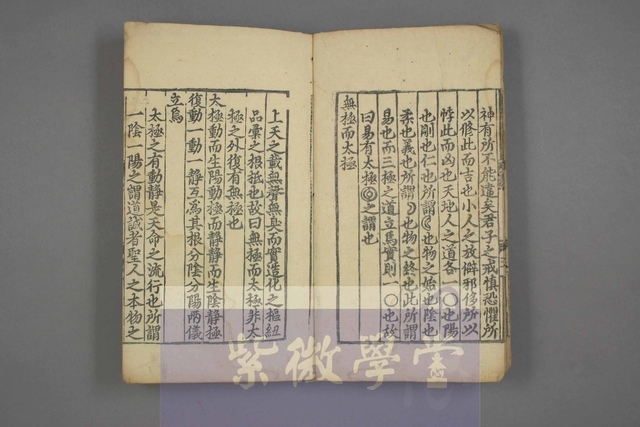 神有所不能違矣君子之戒慎恐懼所
以修此而吉也小人之放僻邪侈所以
悖此而凶也天地人之道各一〇也陽
也剛也仁也所謂☾也物之始也陰也
柔也義也所謂☽也物之終也此所謂
易也而三極之道立焉實則一〇也故
曰易有太極◎之謂也
無極而太極
上天之載無聲無臭而實造化之樞紐
品彙之根柢也故曰無極而太極非太
極之外復有無極也
太極動而生陽動極而靜靜而生陰靜極
復動一動一靜互爲其根分陰分陽兩儀
立焉
太極之有動靜是天命之流行也所謂
一陰一陽之謂道誠者聖人之本物之
紫微學堂